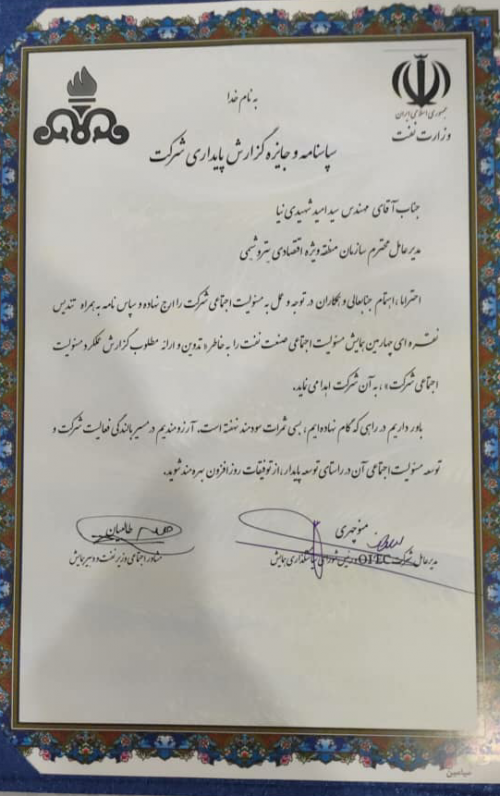 به نام خدا
جمهوری اسلامی ایران
وزارت نفت
سپاسنامه و جایزه گزارش پایداری شرکت
جناب آقای مهندس سید امید شهیدی نیا
مدیر عامل محترم سازمان منطقه ویژه اقتصادی پتروشیمی
احتراما، اهتمام جنابعالی و همکاران در توجه و عمل به مسئولیت اجتماعی شرکت را ارج نهاده و سپاس نامه به همراه تندیس
نقره ای چهارمین همایش مسئولیت اجتماعی صنعت نفت را به خاطر «تدوین و ارائه مطلوب گزارش عملکرد مسئولیت
اجتماعی شرکت»، به آن شرکت اهدا می نماید.
باور داریم در راهی که گام نهاده ایم، بسی ثمرات سودمند نهفته است. آرزومندیم در مسیر بالندگی فعالیت شرکت و
توسعه مسئولیت اجتماعی آن در راستای توسعه پایدار، از توفیقات روزافزون بهره مند شوید.
منوچهری
مدیر عامل شرکت OIEC و رئیس شورای سیاستگذاری همایش
طالبیان
مشاور اجتماعی وزیر نفت و دبیر همایش